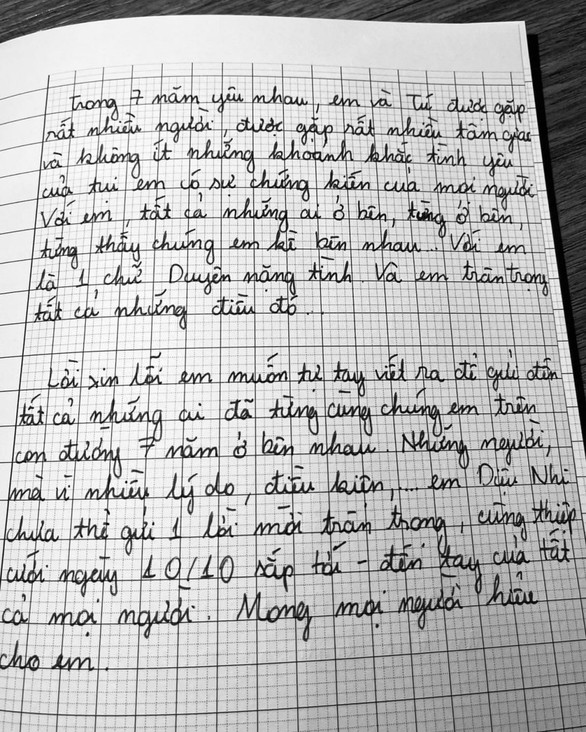 Trong 7 năm yêu nhau, em và Tú được gặp
rất nhiều người, được gặp rất nhiều tâm giao
và không ít những khoảnh khắc tình yêu
của tui em có sự chứng kiến của mọi người
Với em, tất cả những ai ở bên, từng ở bên,
từng thấy chúng em kề bên nhau... Với em
là 1 chữ Duyên nặng tình. Và em trân trọng
tất cả những điều đó...
Lời xin lỗi em muốn tự tay viết ra để gửi đến
tất cả những ai đã từng cùng chúng em trên
con đường 7 năm ở bên nhau. Những người,
mà vì nhiều lý do, điều kiện,... em Diệu Nhi
chưa thể gửi 1 lời mời trân trọng, cùng thiệp
cưới ngày 10/10 sắp tới - đến tay của tất
cả mọi người. Mong mọi người hiểu
cho em.